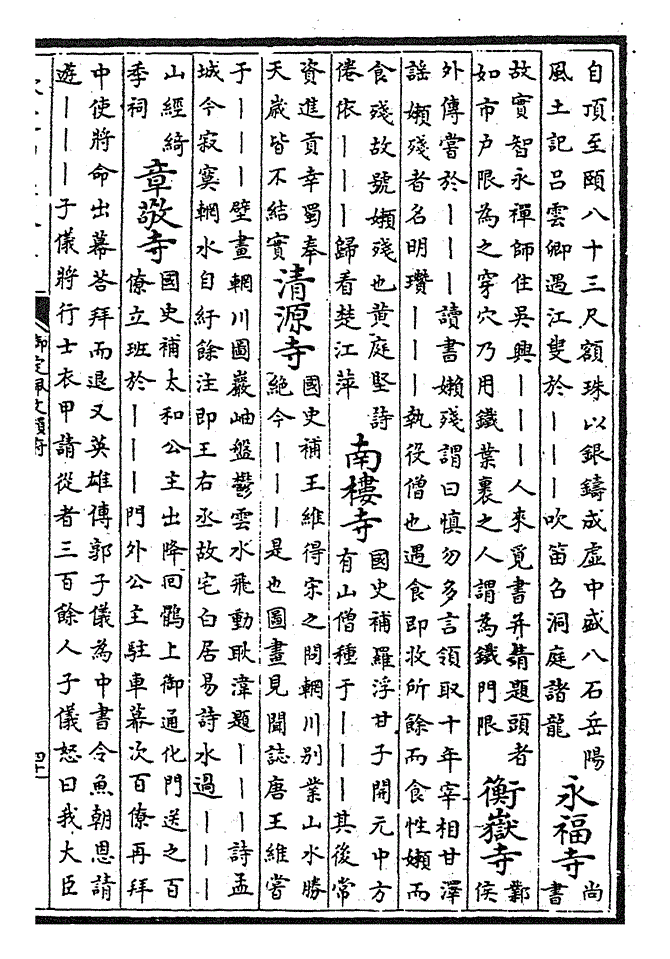 自頂至頤八十三尺額珠以銀鑄成虚中盛八石岳陽
風土記吕雲卿遇江叟於｜｜｜吹笛召洞庭諸龍
永福寺
尚
書
故實智永禪師住吳興｜｜｜人來覓書并請題頭者
如市户限為之穿穴乃用鐵葉裹之人謂為鐵門限
衡嶽寺
鄴
侯
外傳嘗於｜｜｜讀書嬾殘謂曰慎勿多言領取十年宰相甘澤
謡嬾殘者名明瓚｜｜｜執役僧也遇食即收所餘而食性嬾而
食殘故號嬾殘也黄庭堅詩
倦依｜｜｜歸看楚江萍
南樓寺
國史補羅浮甘子開元中方
有山僧種于｜｜｜其後常
資進貢幸蜀奉
天歲皆不結實
清源寺
國史補王維得宋之問輞川别業山水勝
絶今｜｜｜是也圖畫見聞誌唐王維嘗
于｜｜｜壁畫輞川圖巖岫盤鬱雲水飛動耿湋題｜｜｜詩孟
城今寂寞輞水自紆餘注即王右丞故宅白居易詩水過｜｜｜
山經綺
季祠
章敬寺
國史補太和公主出降回鶻上御通化門送之百
僚立班於｜｜｜門外公主駐車幕次百僚再拜
中使將命出幕荅拜而退又英雄傳郭子儀為中書令魚朝恩請
遊｜｜｜子儀將行士衣甲請從者三百餘人子儀怒曰我大臣
御定佩文韻府